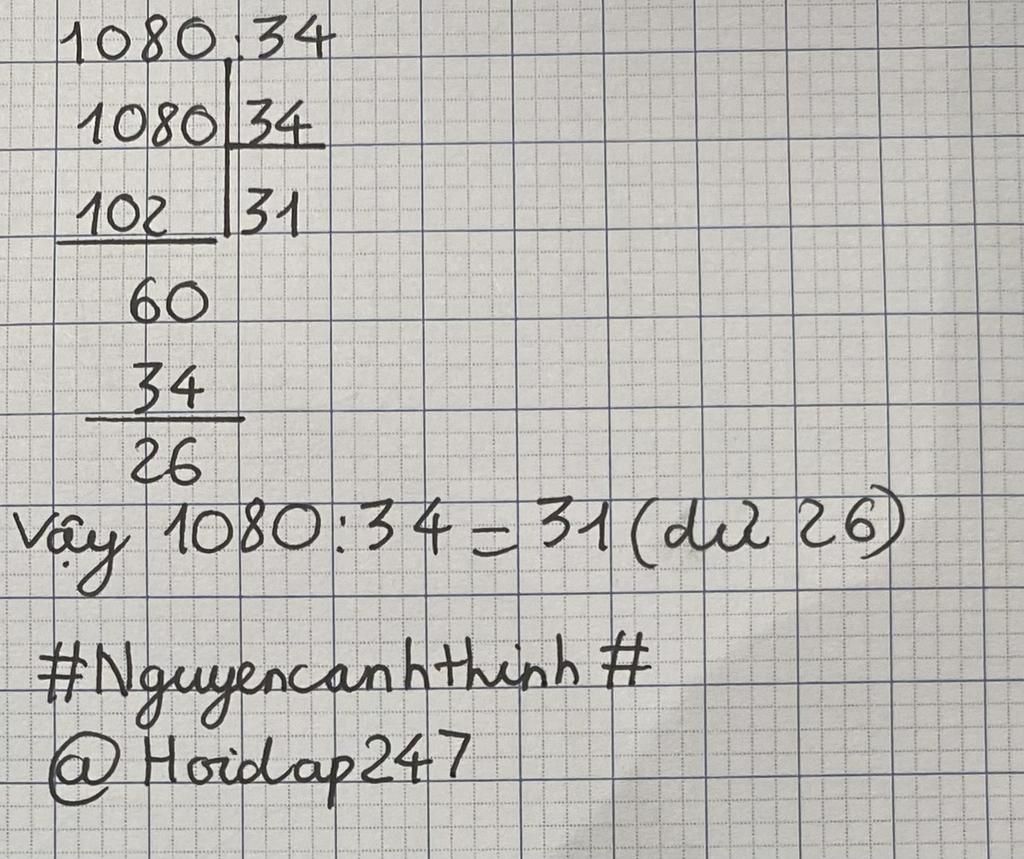 1080:34
1080 34
102 31
60
34
26
Vậy 1080:34=31(dư 26)
#Nguyencanhthinh#
@Hoidap247